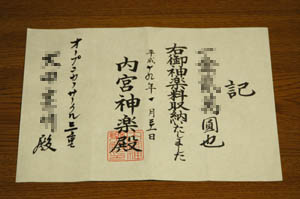 記
圓也
右御神楽料収納いたしました
平成十九年 月 日
内宮神楽殿
オープンカーサークル三重
殿